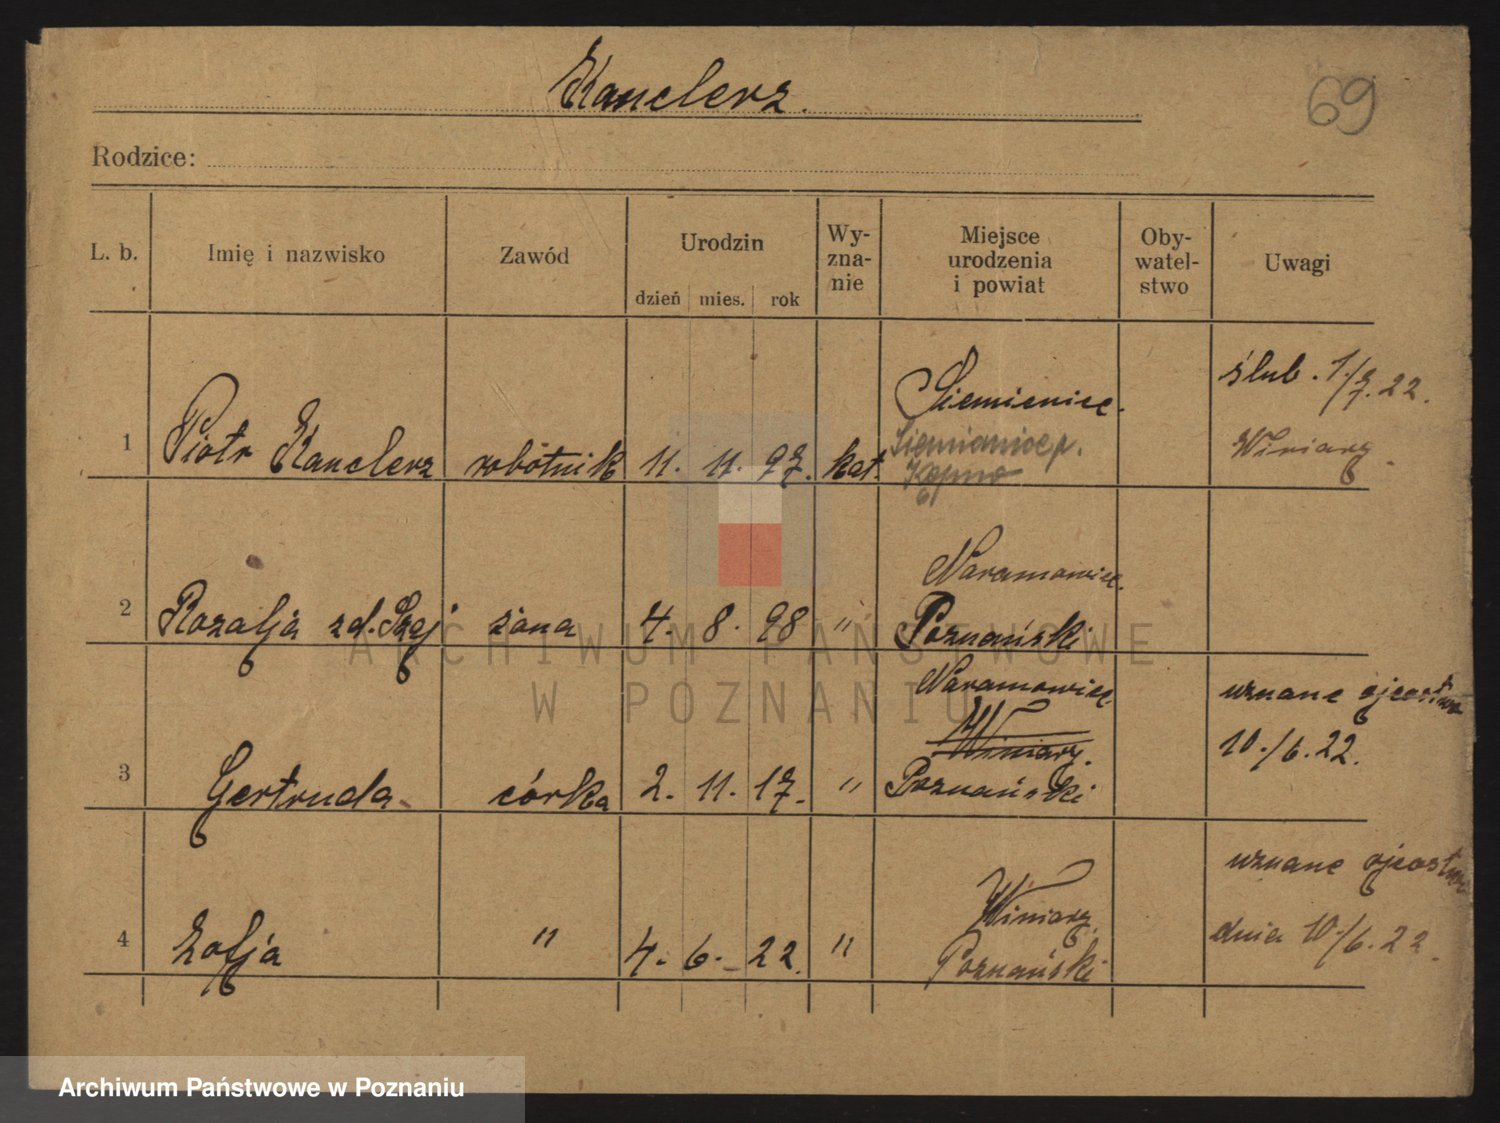 Kanclerz.
69
Rodzice:
L. b.
Imię i nazwisko
Zawód
Urodzin
dzień mies. rok
Wy-
zna-
nie
Miejsce
urodzenia
i powiat
Oby-
watel-
stwo
Uwagi
1 Piotr Kanclerz robotnik 11. 11. 97. kat.
Siemienice.
Siemianice p.
Kępno
ślub. 1./7. 22.
Winiary.
2 Rozalja zd. Szaj żona 4. 8. 98 "
Naramowice.
Poznański
3 Gertruda córka 2. 11. 17. "
Naramowice
Winiary.
Poznański
uznane ojcostwo
10./6. 22.
4 Zofja " 4. 6. 22. "
Winiary
Poznański
uznane ojcostwo
dnia 10./6. 22.
ARCHIWUM PAŃSTWOWE
W POZNANIU
Archiwum Państwowe w Poznaniu